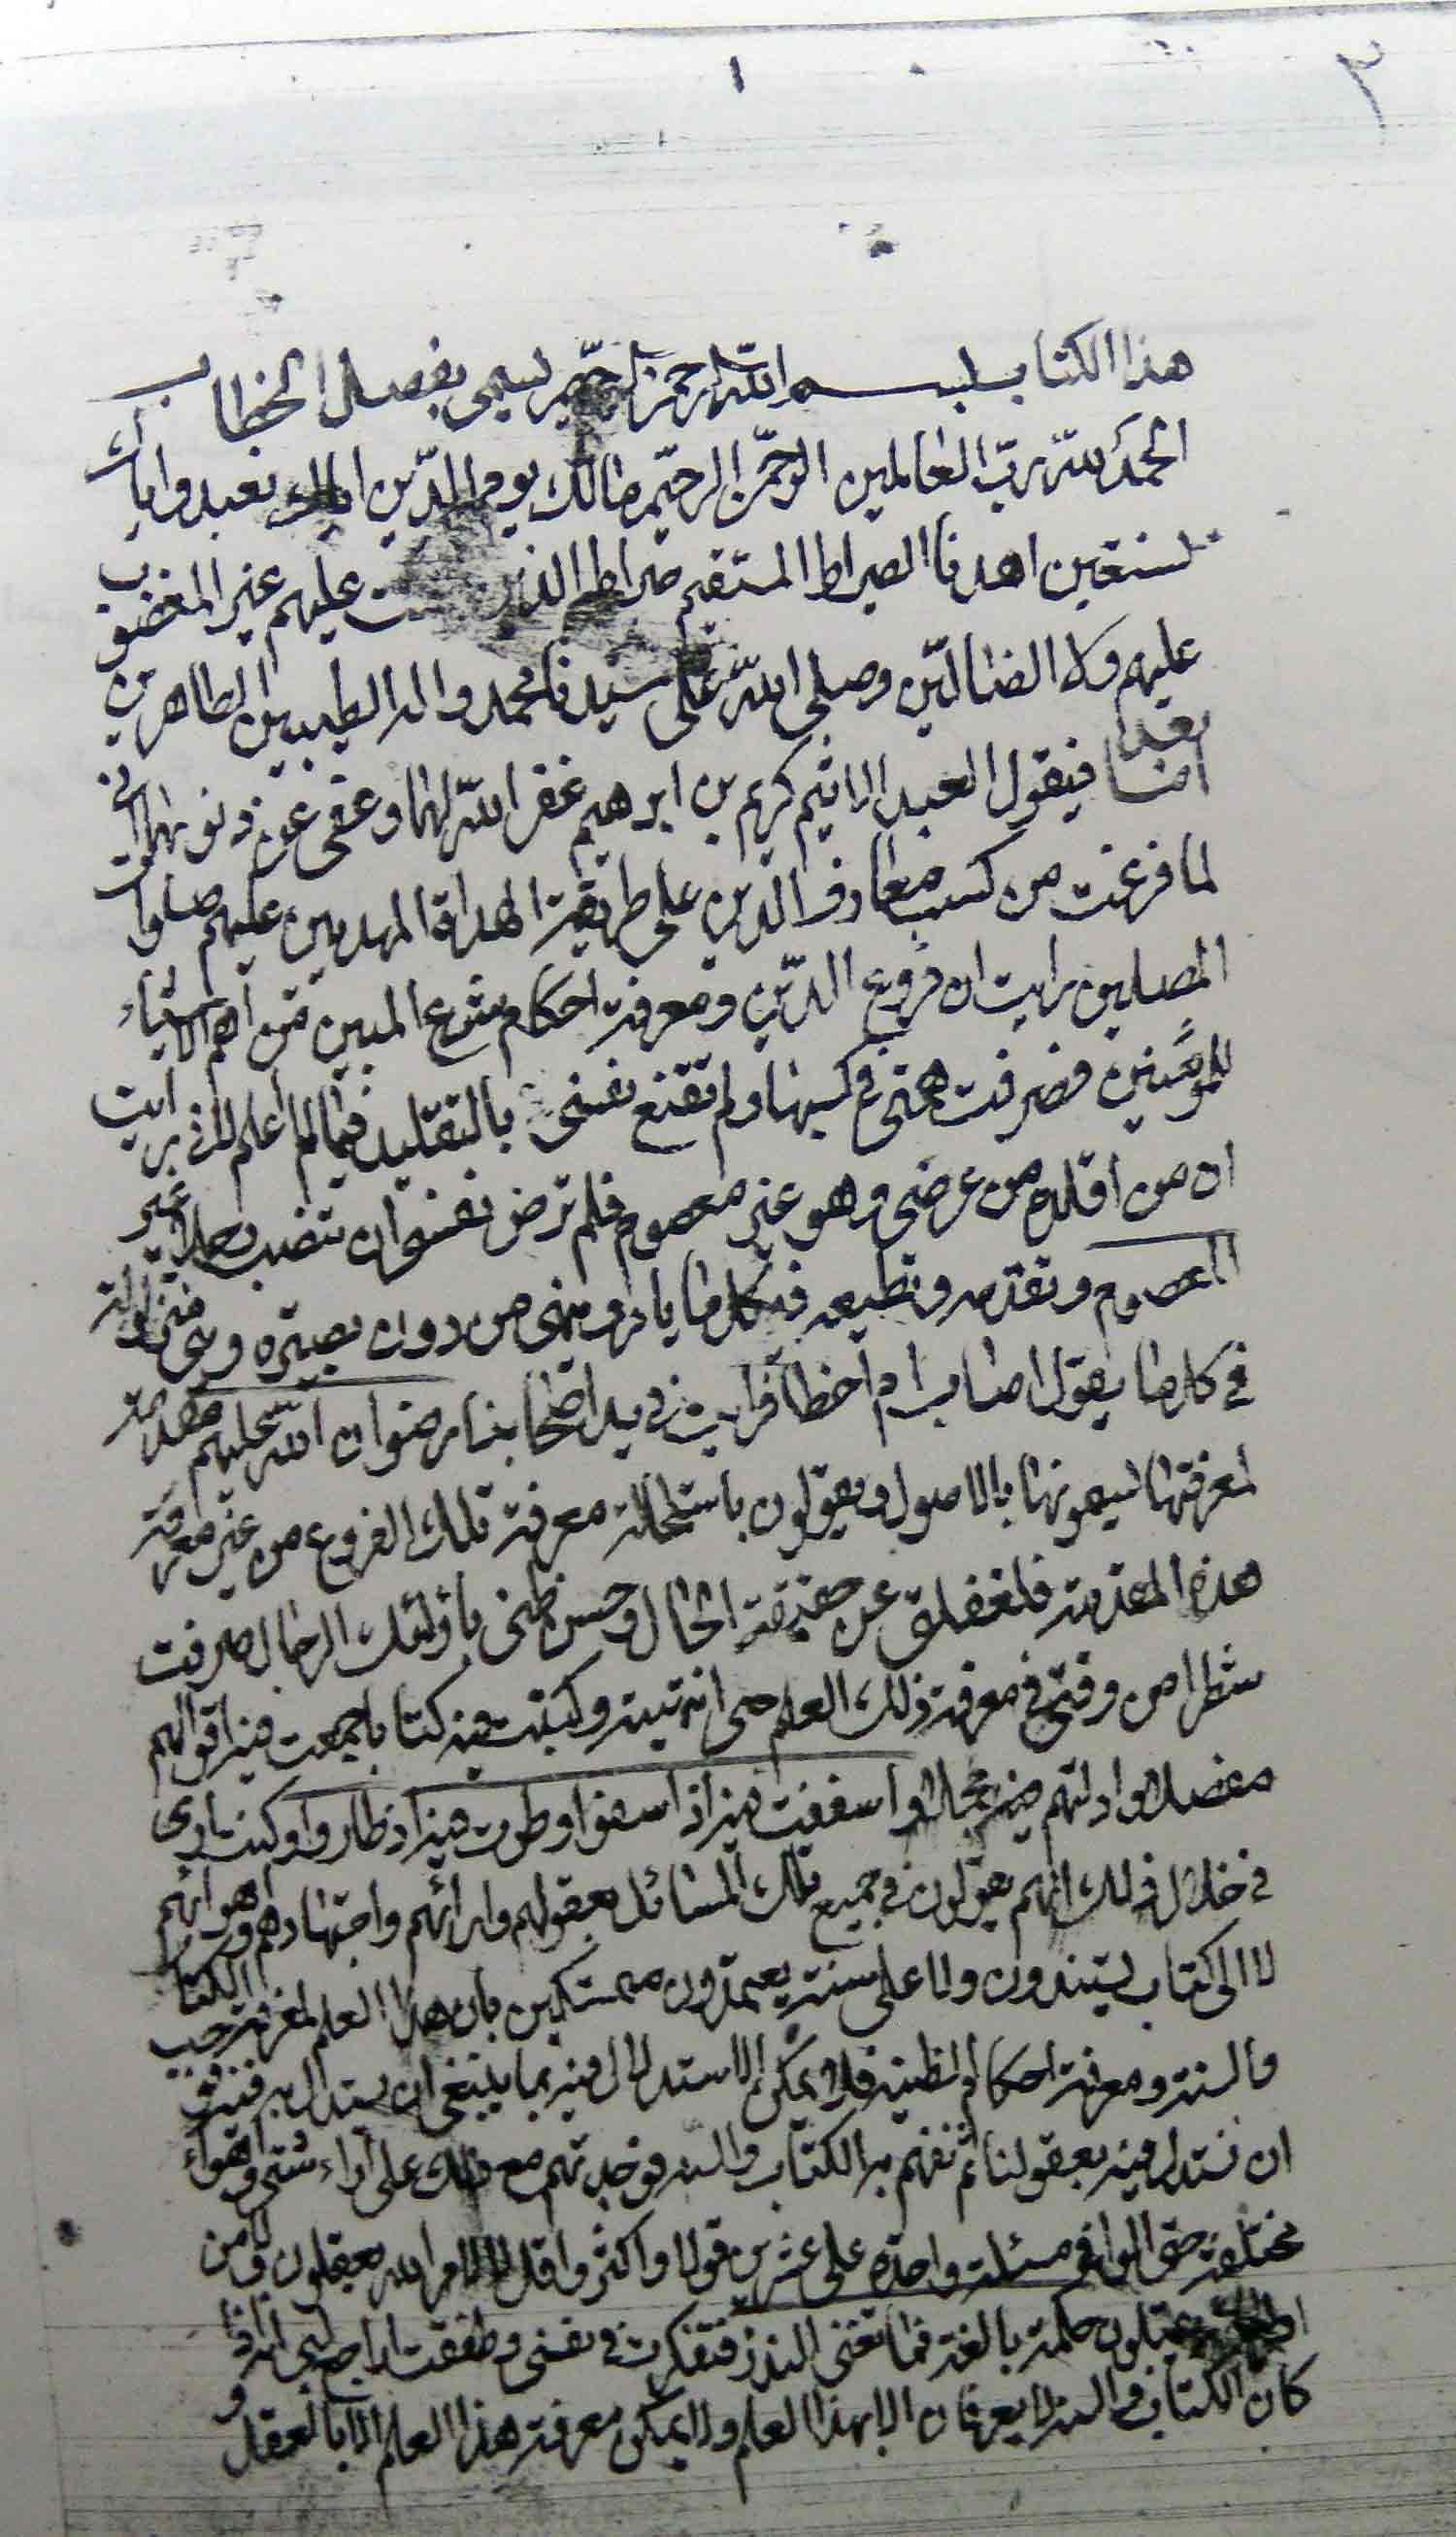 ٢
١
هذا الكتاب بسم الله الرحمن الرحيم يسمى بفصل الخطاب
الحمد لله رب العالمين الرحمن الرحيم مالك يوم الدين اياك نعبد واياك
نستعين اهدنا الصراط المستقيم صراط الذين عليهم غير المغضوب
عليهم ولا الضالين وصلى الله على سيدنا محمد واله الطيبين الطاهرين
اما بعد فيقول العبد الاثيم كريم بن ابرهيم غفر الله لهما وعفى عن ذنوبهما اني
لما فرغت من كسب معارف الدين على طريقة الهداة المهديين عليهم صلوات
المصلين رايت ان فروع الدين ومعرفة احكام شرع المبين من اهم الاشياء
للمؤمنين فصرفت همتي في كسبها ولم تقنع نفسي بالتقليد فيما لم اعلم لاني رايت
ان من اقلده من عرضي وهو غير معصوم فلم ترض نفسي ان تنصب رجلا غير
المعصوم وتقدمه وتطيعه في كل ما يامر وينهى من دون بصيرة
في كل ما يقول اصاب ام اخطأ فرايت في يد اصحابنا رضوان الله عليهم مقدمة
لمعرفتها يسمونها بالاصول ويقولون باستحالة معرفة تلك الفروع من غير معرفة
هذه المقدمة فلغفلتي عن حقيقة الحال وحسن ظني باولئك الرجال صرفت
شطرا من وقتي في معرفة ذلك العلم حتى اتيته وكتبت فيه كتابا جمعت فيه اقوالهم
مفصلا وادلتهم فيه مجملا واسففت فيه اذ اسفوا وطرت فيه اذ طاروا وكنت ارى
في خلال ذلك انهم يقولون في جميع تلك المسائل بعقولهم وارائهم واجتهادهم واهوائهم
لا الى كتاب يستندون ولا على سنة يعتمدون متمسكين بان هذا العلم لمعرفة الكتاب
والسنة ومعرفة احكام الظنية فلا يمكن الاستدلال فيه بما ينبغي ان يستدل به فيه
ان نستدل فيه بعقولنا ثم نفهم به الكتاب والسنة فوجدتهم مع ذلك على اراء شتى واهواء
مختلفة حتى قالوا في مسئلة واحدة على عشرين قولا واكثر واقل لا لامر الله يعقلون ولا من
حكمة بالغة فما تغني النذر فتفكرت في نفسي وطفقت
كان الكتاب والسنة لا يعرفان الا بهذا العلم ولا يمكن معرفة هذا العلم الا بالعقل و